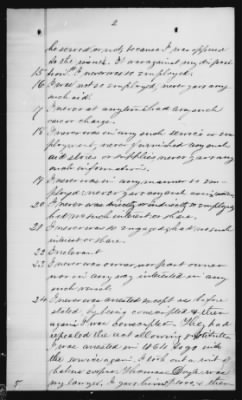 2
he served or not, because I was opposed
to the march. It was against my disposi-
15 tion. I never was so employed.
16 I was not so employed, never gave any
such aid.
17 I never at any time had any such
care or charge.
18 I never was in any such service or em-
ployment, never furnished any such
aid stores or supplies never gave any
such information.
19 I never was in any manner so em-
ployed: never gave any such
20 I never was directly or indirectly so employed
had no such interest or share.
21 I never was so engaged, had no such
interest or share.
22 Irrelevant
23 I never was owner, nor part owner
nor in any way interested in any
such vessel.
24 I never was arrested except as before
stated, by being conscripted & then
again I was conscripted. They had
repealed the act allowing substitutes
I was arrested in 1864 to go into
the service again. I took out a writ of
habeas corpus, Thomas was
my lawyer, I gave him & then